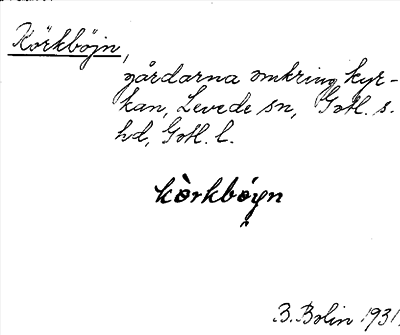 Körkböjn,
gårdarna omkring kyr-
kan, Levede sn, Gotl. s.
hd, Gotl. l.
kòrkbóyn
B. Bolin 1931.